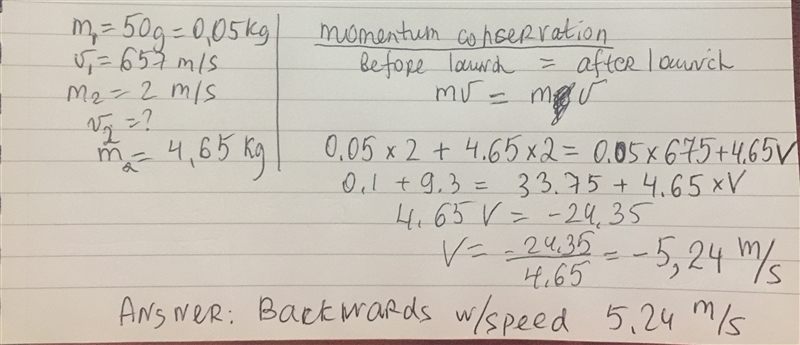 m₁ = 50g = 0,05kg
v₁ = 657 m/s
m₂ = 2 m/s
v₂ = ?
m₂ = 4,65 kg
momentum conservation
Before launch = after launch
mv = m v
0.05 x 2 + 4.65 x 2 = 0.05 x 675 + 4.65V
0.1 + 9.3 = 33.75 + 4.65 x V
4.65 V = -24.35
V = -24.35/4.65 = -5,24 m/s
Answer: Backwards w/speed 5.24 m/s